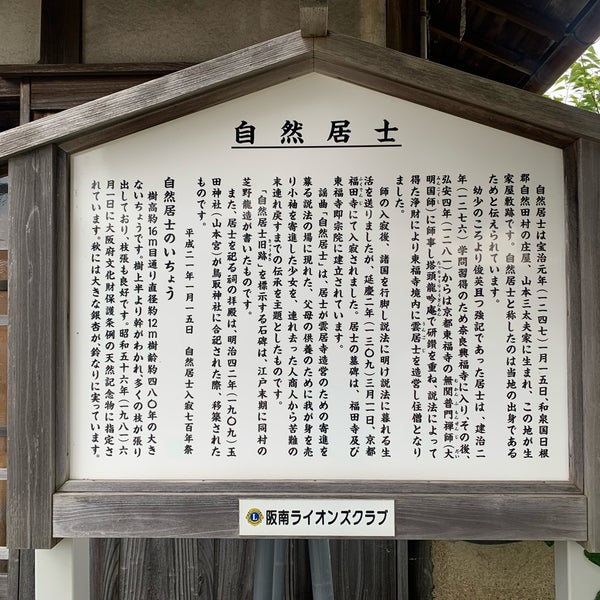 自然居士
自然居士は宝治元年(一二四七)一月一五日、和泉国日根
郡自然田村の庄屋、山本三太夫家に生まれ、この地が生
家屋敷跡です。自然居士と称したのは当地の出身である
ためと伝えられています。
幼少のころより俊英且つ強記であった居士は、建治二
年(一二七六)学問習得のため奈良興福寺に入り、その後、
弘安四年(一二八一)からは京都東福寺の無関普門禅師(大
明国師)に師事し塔頭龍吟庵で研鑽を重ね、説法によって
得た浄財により東福寺境内に雲居士を造営し住僧となり
ました。
師の入寂後、諸国を行脚し説法に明け説法に暮れる生
活を送りましたが、延慶二年(一三〇九)三月一一日、京都
福田寺にて入寂されました。居士の墓碑は、福田寺及び
東福寺即宗院に建立されています。
謡曲「自然居士」は、居士が雲居寺造営のための寄進を
募る説法の場に現れた、父母の供養のために我が身を売
り小袖を寄進した少女を、連れ去った人商人から苦難の
末連れ戻すまでの伝承を主題としたものです。
「自然居士旧跡」を標示する石碑は、江戸末期に同村の
芝野龍造が書いたものです。
また、居士を祀る祠の拝殿は、明治四二年(一九〇九)玉
田神社(山本宮)が鳥取神社に合祀された際、移築された
ものです。
平成二一年一月一五日 自然居士入寂七百年祭
自然居士のいちょう
樹高約16m目通り直径約12m樹齢約四八〇年の大き
ないちょうです。樹上半より幹がわかれ、多くの枝が張り
出しており、枝張も良好です。昭和五十六年(一九八一)六
月一日に大阪府文化財保護条例の天然記念物に指定さ
れています。秋には大きな銀杏が、鈴なりに実っています。
阪南ライオンズクラブ